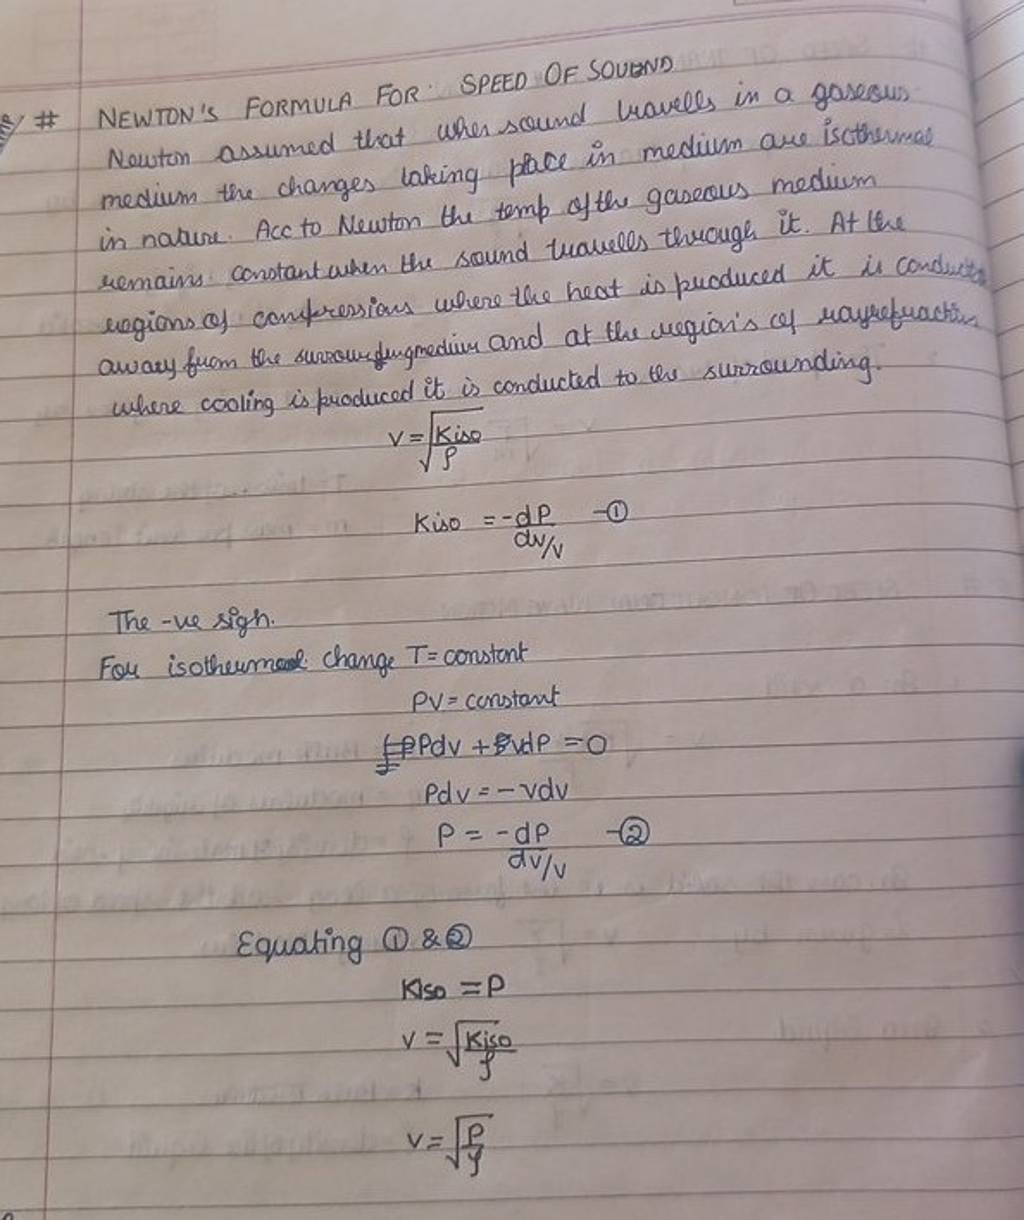 # NEWTON'S FORMULA FOR SPEED OF SOUEND
Newton assumed that when sound travells in a gaseous
medium the changes taking place in medium are isothermal
in nature. Acc to Newton the temp of the gaseous medium
remains constant when the sound travells through it. At the
regions of compressions where the heat is produced it is conducted
away from the surrounding medium and at the region's of rayrefraction
where cooling is produced it is conducted to the surrounding.
V = √Kiso/ρ
Kiso = -dP/dv/v -①
The -ve sign.
For isothermal change T = constant
PV = constant
Pdv + vdP = 0
Pdv = -vdv
P = -dP/dv/v -②
Equating ① & ②
Kiso = P
v = √Kiso/ρ
v = √P/ρ